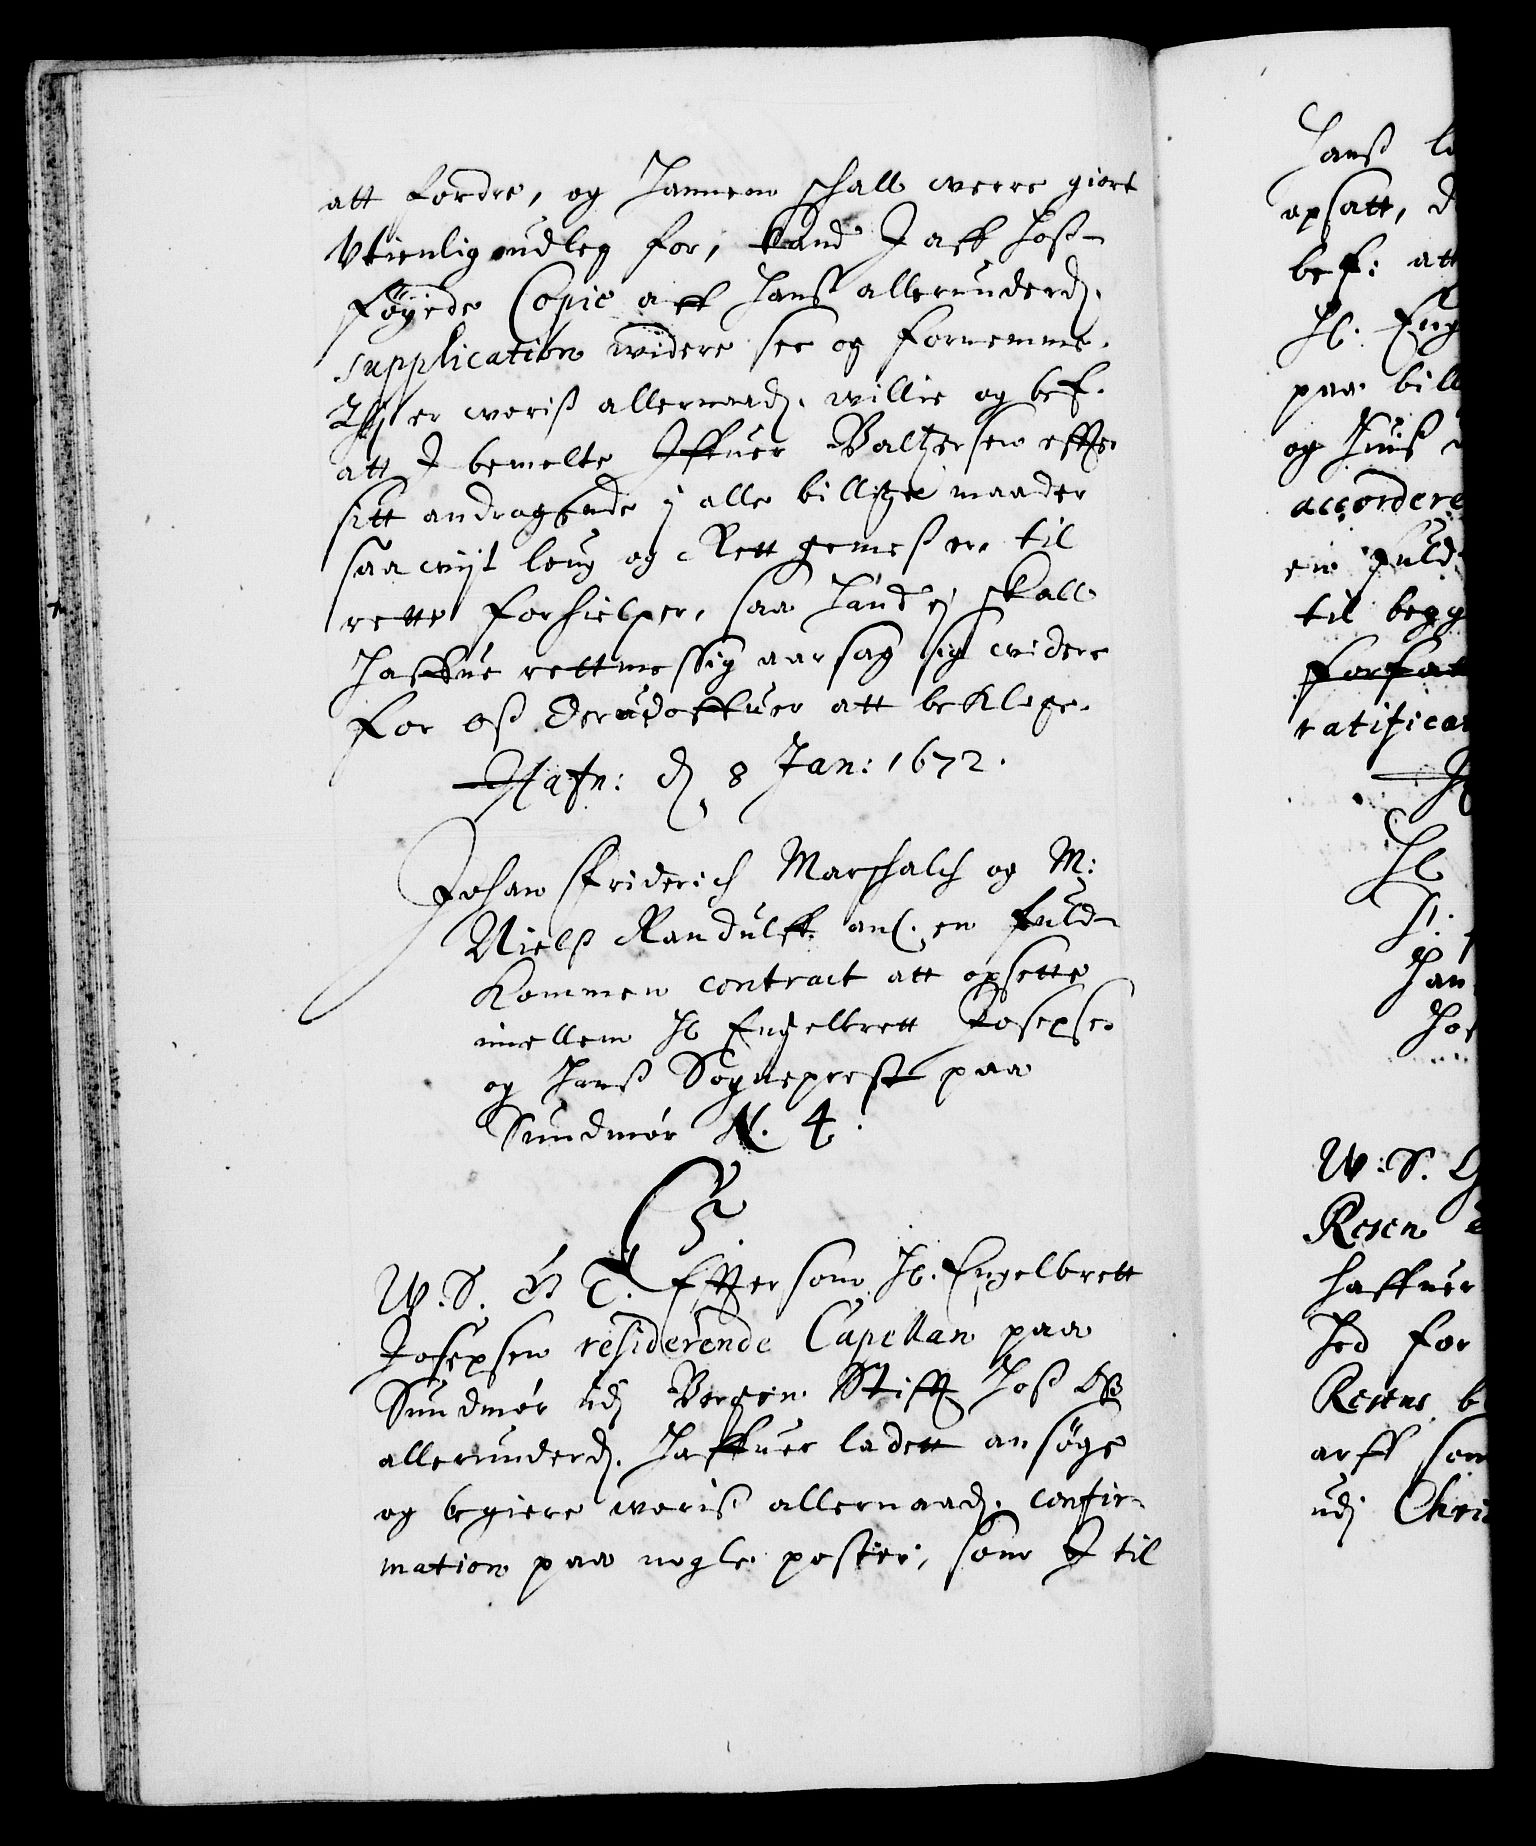 att fordre, og hannem schall werre giort
Vtienlig udleg for, kand I aff hoß-
føyede Copie aff hans allerunderd.
supplication widere see og fornemme.
Thj er woriß allernaad. willie og bef.
att I bemelte Iffuer Baltzersen effter
sitt andragende j alle billige maader
saa wijt loug og Rett gemeß er, til
rette forhielper, saa hand ej skall
haffue rettmessig aarsag sig widere
for oß derudoffuer att beklage.
Hafn: d 8 Jan: 1672.
Johan Friderich Marschalch og M:
Nielß Randulff anl. en fuld-
kommen contract att opsette
imellem Hl Engelbrett Josepsen
og hanß Sogneprest paa
Sundmør N. 4.
C5.
W. S. G T. Efftersom Hl. Engelbrett
Josepsen residerende Capellan paa
Sundmør udj Bergen Stifft hoß Oß
allerunderd. haffuer ladett ansøge
og begiere woriß allernaad. confir-
mation paa nogle poster, som I til
hanß
opsatt,
bef: att
Hl. Eng
paa bill
og huuß
accordere
en fuld
til begg
forfat
ratifica
Hl
W. S.
Resen
haffuer
hed for
Resens
arff som
udj Chri